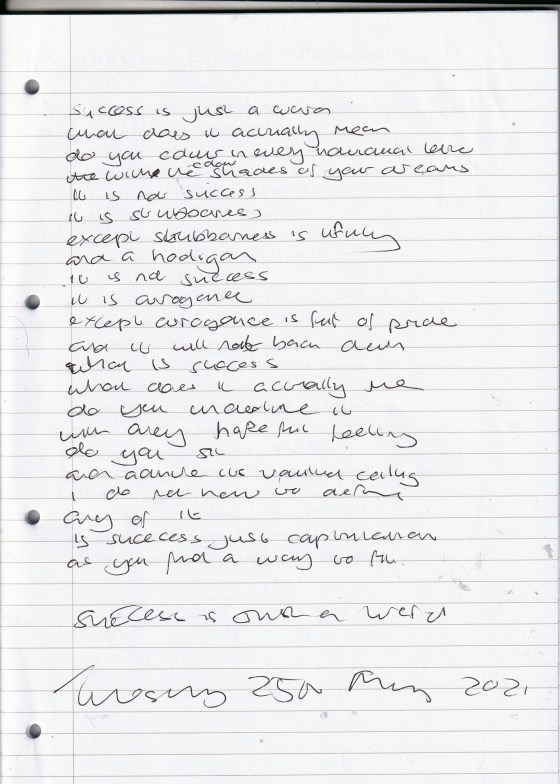 success is just a word
what does it actually mean
do you colour in every individual
with the colour shades of your dreams
it is not success
it is stubborness
except stubborness is
and a
it is not success
it is arrogence
except arrogence is full of pride
and it will not back down
what is success
what does it actually me
do you underline it
with every hateful feeling
do you sit
and admire its vaulted ceiling
I do not how to define
any of it
is success just capitulation
as you find a way to fit
success is just a word
25th May 2021